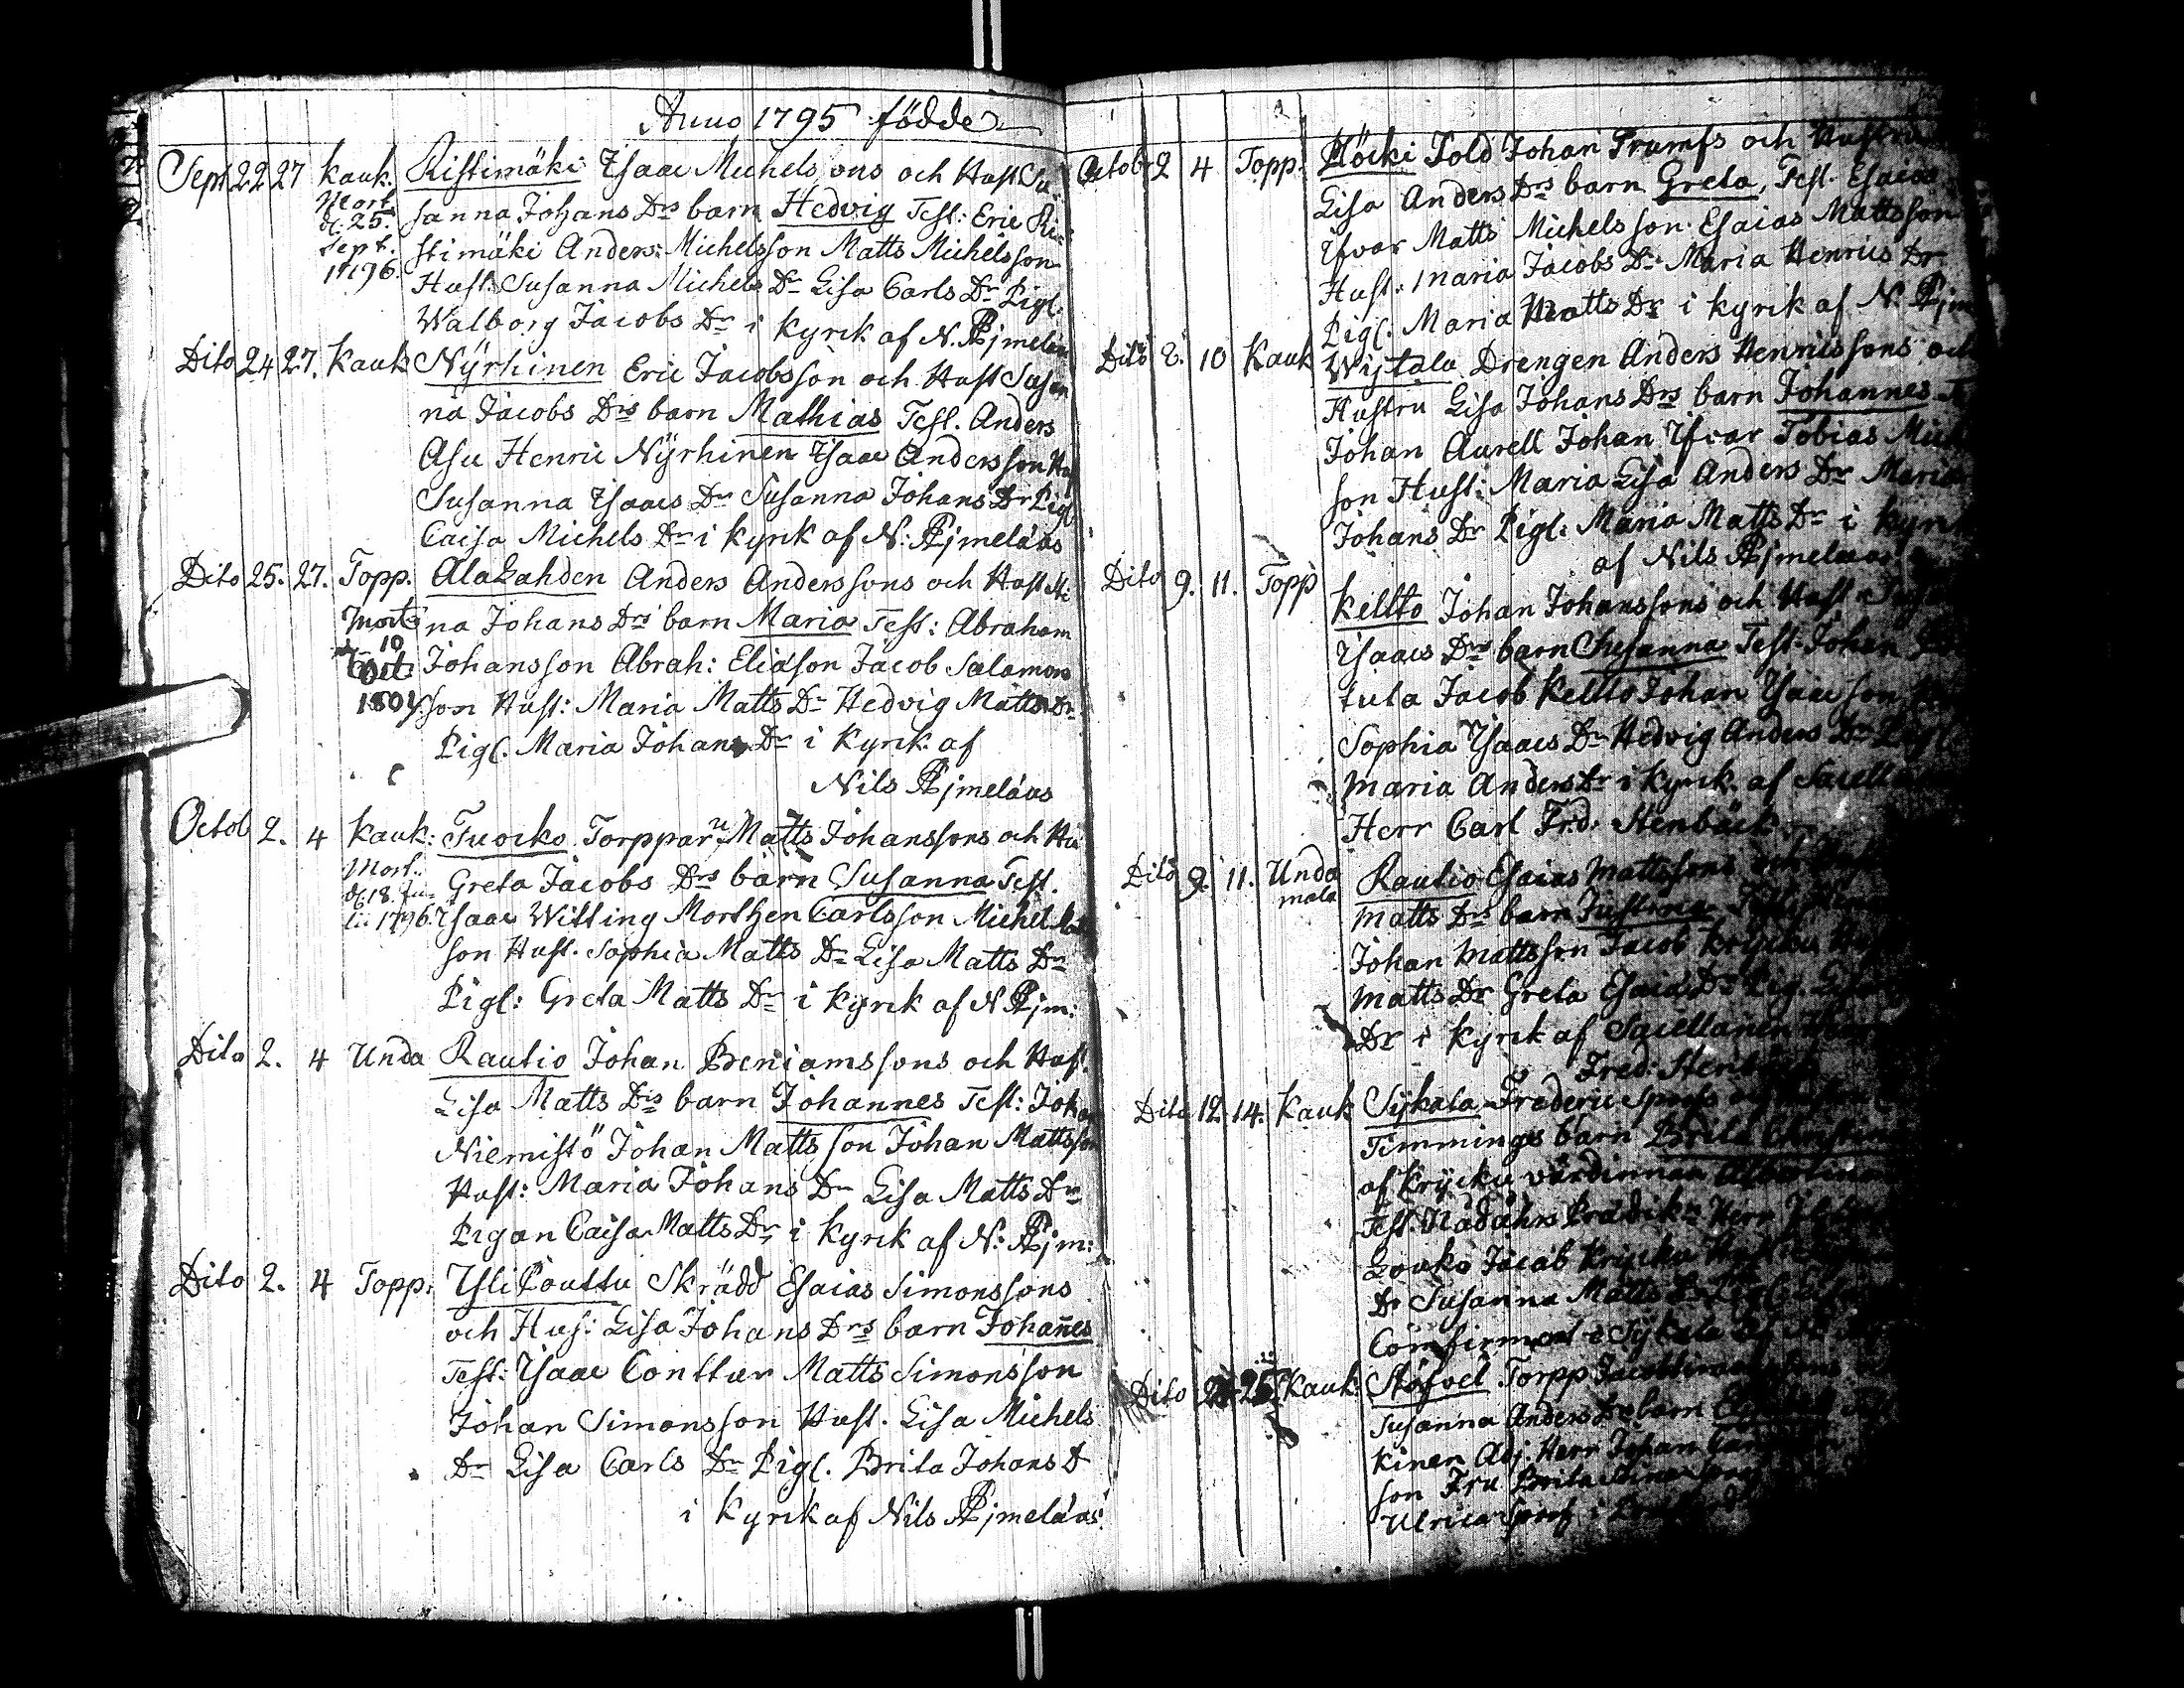 Anno 1795 födde
Sept. 22 27 Kauk. Ristimäki Isaac Michelssons och Hust Su-
Mort. d. 25. Sept. 1796.
sanna Johans Drs barn Hedvig Test: Eric Ri-
stimäki Anders Michelsson Matts Michelsson
Hust: Susanna Michels Dr Lisa Carls Dr Pigl.
Walborg Jacobs Dr i Kyrk. af N. Äjmelæus
Dito 24 27. Kauk Nyrhinen Eric Jacobsson och Hust Susan
na Jacobs Drs barn Mathias Test. Anders
Asu Henric Nyrhinen Isaac Andersson Hust
Susanna Isaacs Dr Susanna Johans Dr Pigl
Caisa Michels Dr i Kyrk af N: Äjmelæus
Dito 25. 27. Topp. AlaLahden Anders Anderssons och Hust Mi
Mort. 10 Oct. 1801
na Johans Drs barn Maria Test: Abraham
Johansson Abrah: Eliason Jacob Salamons
son Hust: Maria Matts Dr Hedvig Matts Dr
Pigl. Maria Johans Dr i Kyrk. af
Nils Äjmelæus
Octob 2. 4 Kauk: Tuocko Torppar Matts Johanssons och Hu
Mort. d. 18. Ju- li. 1796.
Greta Jacobs Drs barn Susanna Test.
Isaac Witting Morthen Carlsson Michel
son Hust. Sophia Matts Dr Lisa Matts Dr
Pigl: Greta Matts Dr i Kyrk af N Äjm:
Dito 2. 4 Unda Rautio Johan Beniamssons och Hust.
Lisa Matts Drs barn Johannes Test: Johan
Niemistö Johan Mattsson Johan Mattsson
Hust: Maria Johans Dr Lisa Matts Dr
Pigan Caisa Matts Dr i Kyrk af N: Äjm:
Dito 2. 4 Topp. YliPouttu Skrädd Esaias Simonssons
och Hus: Lisa Johans Drs barn Johañes
Test: Isaac Conttur Matts Simonsson
Johan Simonsson Hust. Lisa Michels
Dr Lisa Carls Dr Pigl. Brita Johans D
i Kyrk af Nils Äjmelæus
Octob 2 4 Topp. Plöcki Sold Johan Trumfs och Hustru
Lisa Anders Drs barn Greta, Test. Esaias
Ifvar Matts Michelsson Esaias Mattsson
Hust. Maria Jacobs Dr Maria Henrics Dr
Pigl. Maria Matts Dr i Kyrk af N. Äjm
Dito 8. 10 Kauk Wijtala Drengen Anders Henricssons och
Hustru Lisa Johans Drs barn Johannes
Johan Aurell Johan Ifvar Tobias Mich
son Hust: Maria Lisa Anders Dr Maria
Johans Dr Pigl: Maria Matts Dr i Kyrk
af Nils Äjmelæus
Dito 9. 11. Topp Kellto Johan Johanssons och Hust
Isaacs Drs barn Susanna Test. Johan
tula Jacob Kellto Johan Isaacson
Sophia Isaacs Dr Hedvig Anders Dr Pigl
Maria Anders Dr i Kyrk. af Sacell
Herr Carl Frd: Stenbäck
Dito 9. 11. Unda Rautio Esaias Mattssons och
mala
Matts Drs barn Justina
Johan Mattsson Jacob Krÿcku
Matts Dr Greta Esaiæ Dr Pig.
Dr i Kyrk af Sacellanen Herr
Fred: Stenbäck
Dito 12. 14. Kauk Sÿkala Frederic
Timminges barn Brita Christina
af Krÿcku värdinnan Albertina
Test. Nådåhrs Prädik: Herr
Louko Jacob Krÿcku
Dr Susanna Matts Dr
Comfirmert i Sykala af N.
Dito 25 Kauk: Stöfvel Torpp Jacob
Susanna Anders Drs barn
kinen Adj. Herr Johan
son Fru Brita Stina
Ulrica